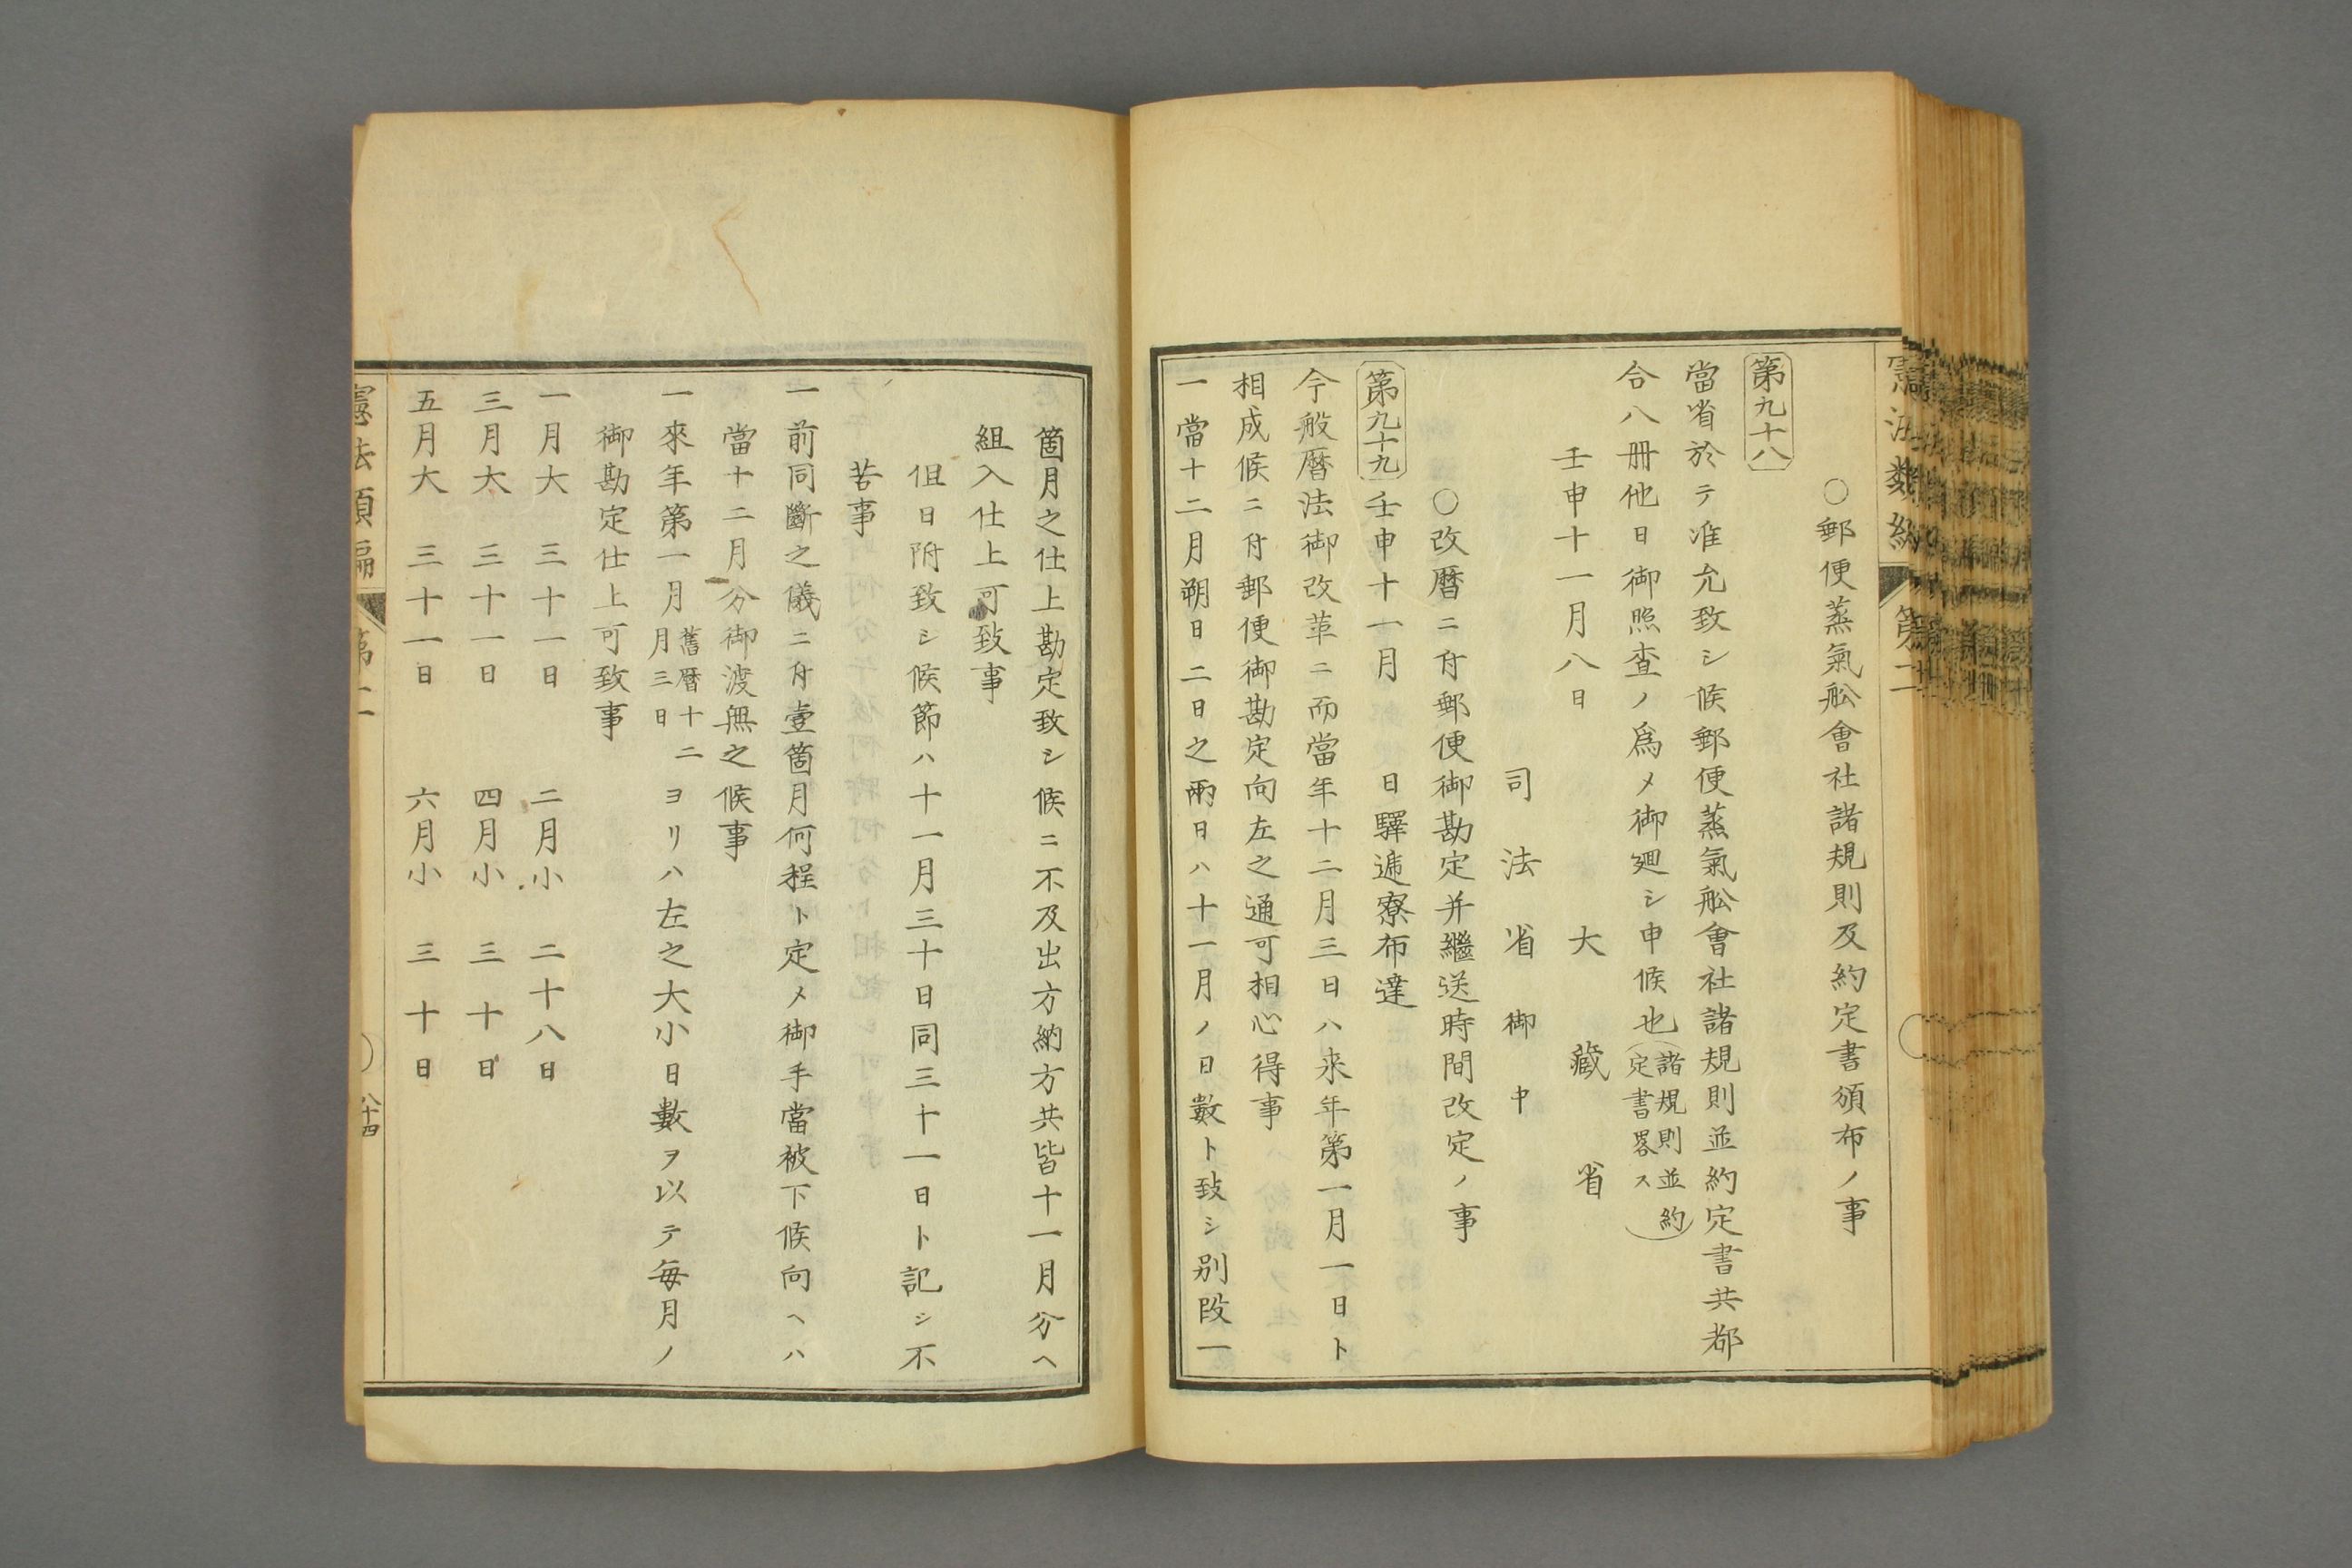 ○郵便蒸氣舩會社諸規則及約定書頒布ノ事
第九十八
當省於テ准允致シ候郵便蒸氣舩會社諸規則並約定書共都
合八冊他日御照査ノ爲メ御廻シ申候也(諸規則並約定書畧ス)
壬申十一月八日
大藏省
司法省御中
○改曆ニ付郵便御勘定并繼送時間改定ノ事
第九十九 壬申十一月 日驛遞寮布達
今般曆法御改革ニ而當年十二月三日ハ来年第一月一日ト
相成候ニ付郵便御勘定向左之通可相心得事
一當十二月朔日二日之兩日ハ十一月ノ日數ト致シ別段一
箇月之仕上勘定致シ候ニ不及出方納方共皆十一月分ヘ
組入仕上可致事
但日附致シ候節ハ十一月三十日同三十一日ト記シ不
苦事
一前同斷之儀ニ付壹箇月何程ト定メ御手當被下候向ヘハ
當十二月分御渡無之候事
一來年第一月舊曆十二月三日ヨリハ左之大小日數ヲ以テ毎月ノ
御勘定仕上可致事
一月大 三十一日 二月小 二十八日
三月大 三十一日 四月小 三十日
五月大 三十一日 六月小 三十日
憲法類編 第二 八十四